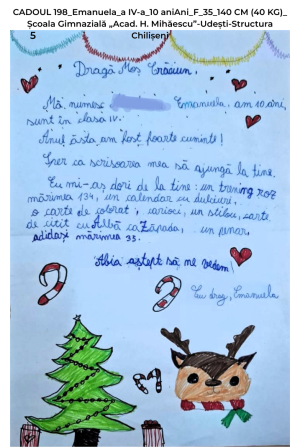 CADOUL 198_Emanuela_a IV-a_10 aniAni_F_35_140 CM (40 KG)_
Școala Gimnazială „Acad. H. Mihăescu”-Udești-Structura
5 Chilișeni
Dragă Moș Crăciun,
Mă numesc Emanuela, am 10 ani,
sunt în clasa IV.
Anul ăsta am fost foarte cuminte!
Sper ca scrisoarea mea să ajungă la tine.
Eu mi-aș dori de la tine: un traning roz
mărimea 134, un calendar cu dulciuri,
o carte de colorat, carioci, un stilou, carte
de citit cu Albă ca Zăpada, un penar,
adidași mărimea 35.
Abia aștept să ne vedem!
Cu drag, Emanuela